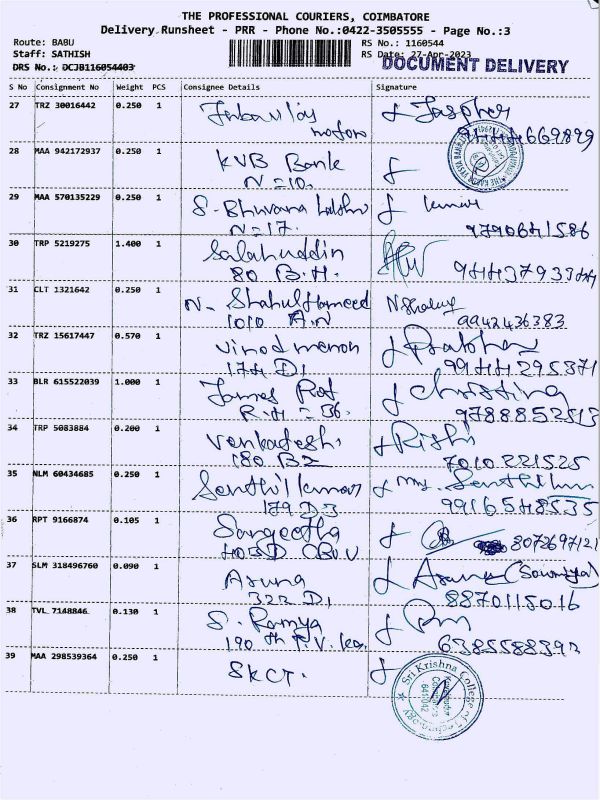 THE PROFESSIONAL COURIERS, COIMBATORE
Delivery Runsheet - PRR - Phone No.:0422-3505555 - Page No.:3
Route: BABU RS No.: 1160544
Staff: SATHISH RS Date: 27-Apr-2023
DRS No.: DCJB116054403 DOCUMENT DELIVERY
S No Consignment No Weight PCS Consignee Details Signature
27 TRZ 30016442 0.250 1 Jaspher
motors 9444669899
28 MAA 942172937 0.250 1 KVB Bank
N=10.
29 MAA 570135229 0.250 1 S. Bhuvana Lakshmi Kumar
N=17. 9790641586
30 TRP 5219275 1.400 1 Salahuddin
80 B.H.
31 CLT 1321642 0.250 1 N. Shahul Hameed
1010 A.N 9942436383
32 TRZ 15617447 0.570 1 Vinod menon Prabhar
174 D1 9944295371
33 BLR 615522039 1.000 1 James Christina
R.H = 36. 9788852513
34 TRP 5083884 0.200 1 Venkatesh. Rishi
180 B2 7010221525
35 NLM 60434685 0.250 1 Senthil Kumar
179 D3 9916548535
36 RPT 9166874 0.105 1 Sangeetha
8072697121
37 SLM 318496760 0.090 1 Aruna Aruna (Sowmiya)
322 D1 8870115016
38 TVL 7148846 0.130 1 S. Ramya
190 6385588392
39 MAA 298539364 0.250 1 SKCT.
Sri Krishna College of Technology
Coimbatore
641042